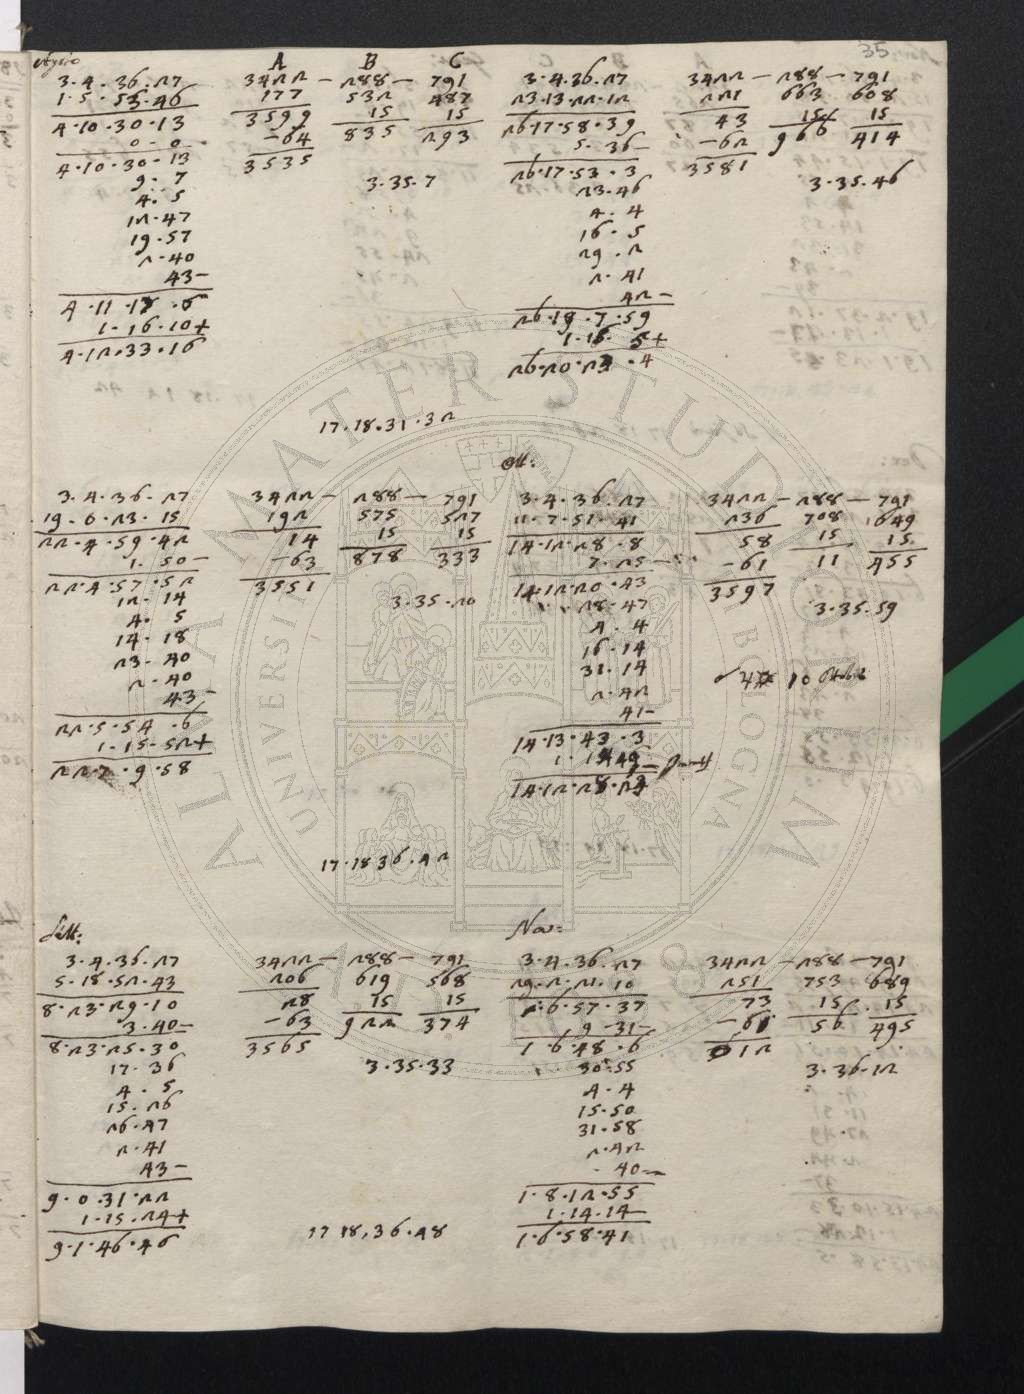 35
A B C
3.4.36.27 3422 — 288 — 791
1.5.53.46 177 532 487
4.10.30.13 3599 15 15
0.0 -64 835 293
4.10.30.13 3535
9.7 3.35.7
4.5
12.47
19.57
2.40
43-
4.11.18.6
1.16.10+
4.12.33.16
3.4.36.27 3422 — 288 — 791
23.13.22.12 221 663 608
26.17.58.39 43 15 15
5.36- -62 966 414
26.17.53.3 3581
23.46 3.35.46
4.4
16.5
29.2
2.41
42-
26.19.7.59
1.16.5+
26.20.23.4
17.18.31.32
3.4.36.27 3422 — 288 — 791
19.0.23.15 192 575 527
22.4.59.42 14 15 15
1.50- -63 878 333
22.4.57.52 3551
12.14 3.35.20
4.5
14.18
23.40
2.40
43-
22.5.54.6
1.15.52+
22.7.9.58
Ott:
3.4.36.27 3422 — 288 — 791
11.7.51.41 236 708 649
14.12.28.8 58 15 15
7.25- -61 11 455
14.12.20.43 3597
28.47 3.35.59
4.4
16.14
31.14 10 Ottobre
2.42
41-
14.13.43.3
14.12.28.23
17.18.36.42
Sett:
3.4.36.27 3422 — 288 — 791
5.18.52.43 206 619 568
8.23.29.10 28 15 15
3.40- -63 922 374
8.23.25.30 3565
17.36 3.35.33
4.5
15.26
26.47
2.41
43-
9.0.31.22
1.15.24+
9.1.46.46
Nov:
3.4.36.27 3422 — 288 — 791
29.2.21.10 251 753 689
2.6.57.37 73 15 15
9.31- -61 56 495
1.6.48.6 612
30.55 3.36.12
4.4
15.50
31.58
2.42
40-
1.8.12.55
1.14.14-
1.6.58.41
17.18.36.48
ALMA MATER STUDIORUM
UNIVERSITÀ DI BOLOGNA